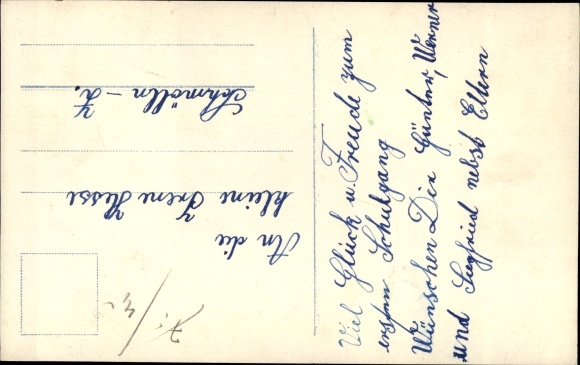 Viel Glück u. Freude zum
ersten Schulgang
Wünschen Dir Günter, Werner
und Siegfried nebst Eltern
An die
kleine Irene Hesse
Schmölln - Z.